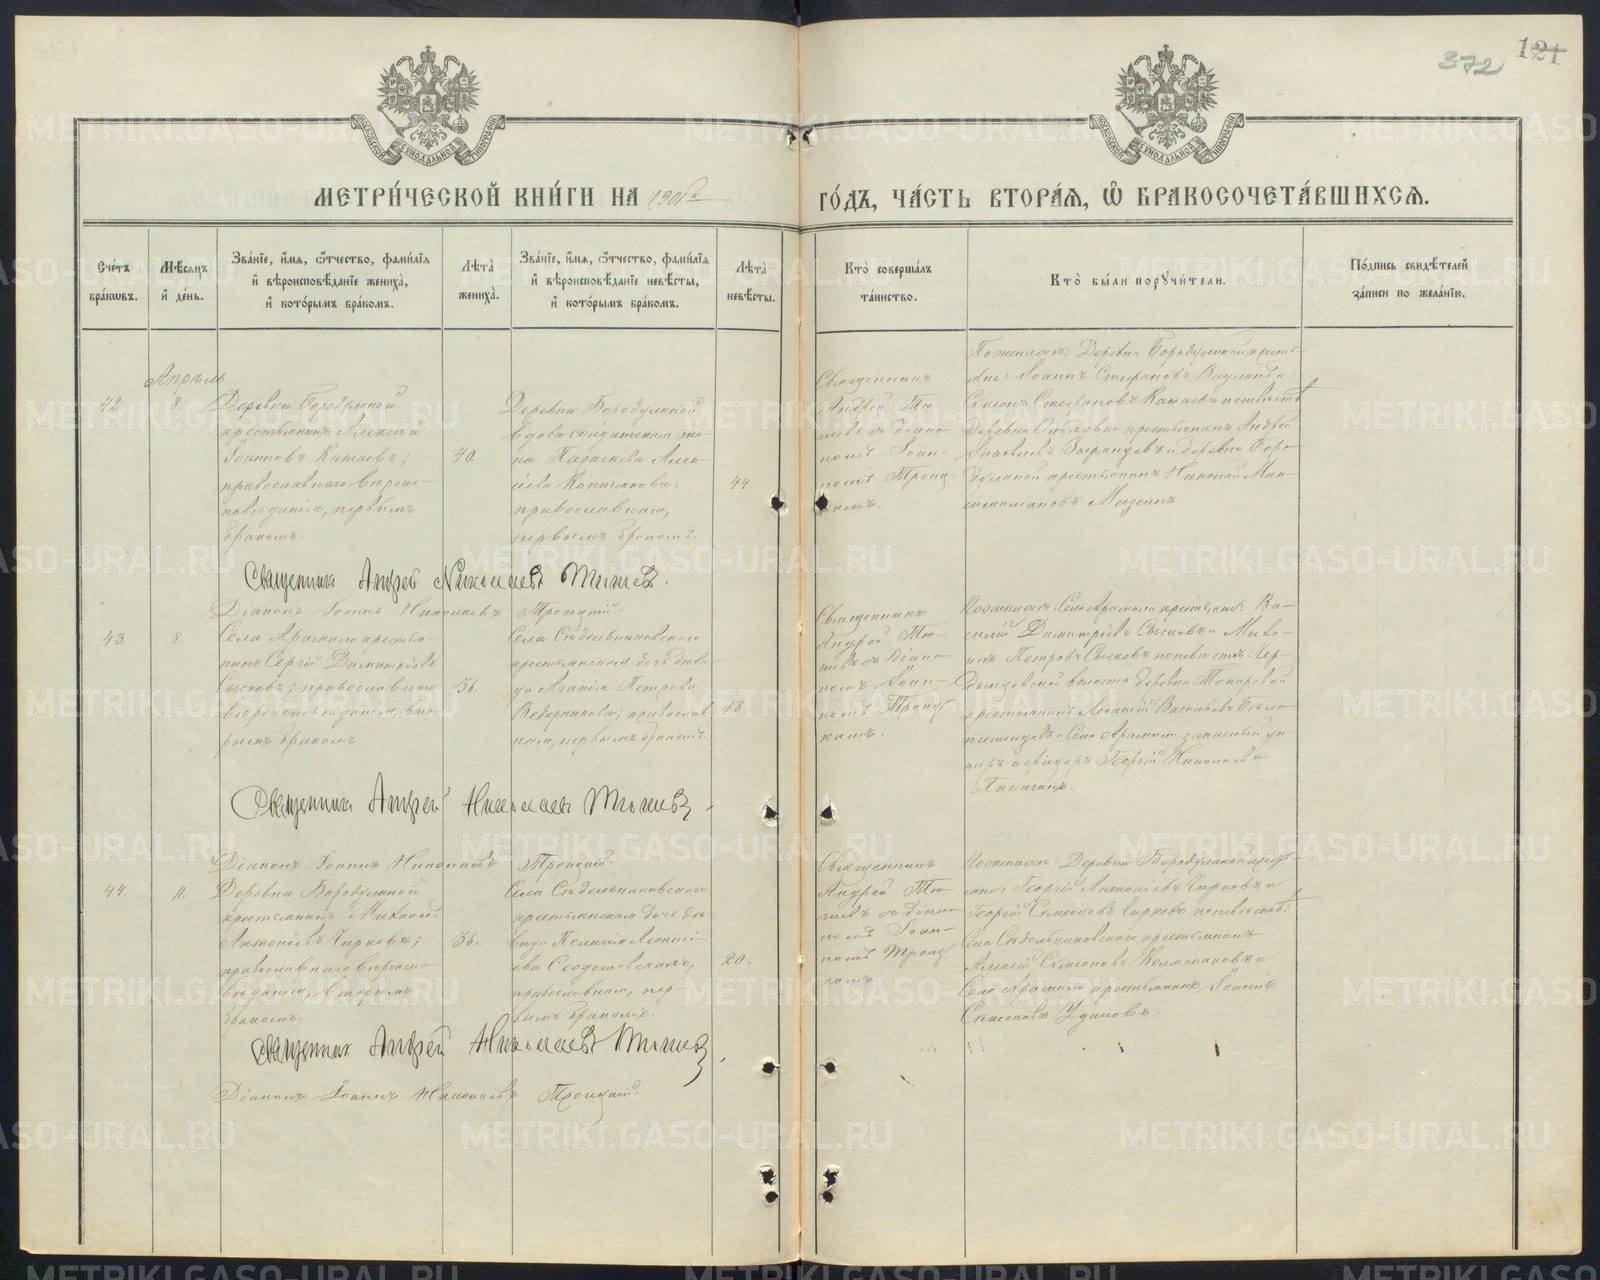 372 121
МОСКОВСКОЙ СУНОДАЛЬНОЙ ТИПОГРАФІИ
МОСКОВСКОЙ СУНОДАЛЬНОЙ ТИПОГРАФІИ
МЕТРИ́ЧЕСКОЙ КНИ́ГИ НА 1901й ГО́ДЪ, ЧА́СТЬ ВТОРА́Я, Ѡ҆ БРАКОСОЧЕТА́ВШИХСЯ.
Сче́тъ бра́кѡвъ.
Мѣ́сяцъ и҆ де́нь.
Зва́нїе, и҆́мя, ѻ҆́тчество, фами́лїя и҆ вѣроисповѣ́данїе жениха̀, и҆ кото́рымъ бра́комъ.
Лѣта̀ жениха̀.
Зва́нїе, и҆́мя, ѻ҆́тчество, фами́лїя и҆ вѣроисповѣ́данїе невѣ́сты, и҆ кото́рымъ бра́комъ.
Лѣта̀ невѣ́сты.
Кто̀ соверша́лъ та́инство.
Кто̀ бы́ли пору́чители.
По́дпись свидѣ́телей за́писи по жела́нїю.
Апрѣль
42.
8.
Деревни Бородулиной
крестьянинъ Алексѣй
Іоанновъ Катаевъ;
православнаго вѣроис-
повѣданія, первымъ
бракомъ.
40.
Деревни Бородулиной
вдова солдатская же-
на Параскева
православная,
первымъ бракомъ.
44.
Священникъ
Андрей Тю-
шевъ съ діако-
номъ Іоан-
номъ Троиц-
кимъ.
По женихѣ: Деревни Бородулиной кресть-
яне: Іоаннъ Стефановъ
Симеонъ Стефановъ Катаевъ по невѣстѣ
крестьянинъ Андрей
и деревни Боро-
дулиной крестьянинъ Николай
Священникъ Андрей Николаевъ Тюшевъ.
Діаконъ Іоаннъ Николаевъ Троицкій.
43.
8.
Села Арамили крестья-
нинъ Сергій Димитріевъ
Сысковъ; православнаго
вѣроисповѣданія, вто-
рымъ бракомъ.
36.
Села Сѣдельниковскаго
крестьянская дочь дѣви-
ца Агапія Петрова
Ведерникова; православ-
ная, первымъ бракомъ.
18.
Священникъ
Андрей Тю-
шевъ съ діако-
номъ Іоан-
номъ Троиц-
кимъ.
По женихѣ: Села Арамили крестьяне: Ва-
силій Димитріевъ Сысковъ и Миха-
илъ Петровъ Сысковъ по невѣстѣ:
волости деревни Токаревой
крестьянинъ Леонтій Васильевъ
и Села Арамили запасный ун-
теръ офицеръ Георгій Николаевъ
Священникъ Андрей Николаевъ Тюшевъ.
Діаконъ Іоаннъ Николаевъ Троицкій.
44.
11.
Деревни Бородулиной
крестьянинъ Михаилъ
Антоніевъ Чирковъ;
православнаго вѣроиспо-
вѣданія, вторымъ
бракомъ.
36.
Села Сѣдельниковскаго
крестьянская дочь дѣ-
вица Пелагія Леонті-
ева
православная, пер-
вымъ бракомъ.
20.
Священникъ
Андрей Тю-
шевъ съ діако-
номъ Іоан-
номъ Троиц-
кимъ
По женихѣ: Деревни Бородулиной кресть-
яне: Георгій Антоніевъ Чирковъ и
Георгій Симеоновъ Чирковъ по невѣстѣ:
Села Сѣдельниковскаго крестьянинъ
Алексій Симеоновъ и
Села Арамили крестьянинъ Іоаннъ
Симеоновъ
Священникъ Андрей Николаевъ Тюшевъ
Діаконъ Іоаннъ Николаевъ Троицкій.
METRIKI.GASO-URAL.RU